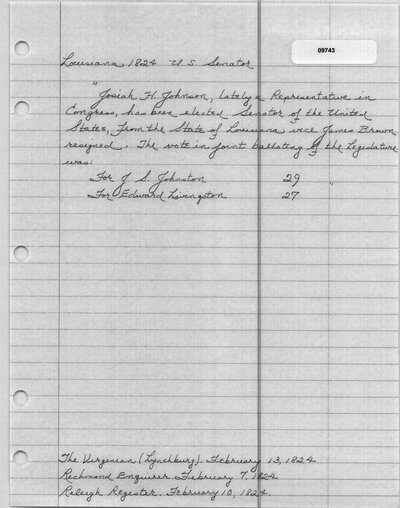 09743
Louisiana 1824 U S Senator
"Josiah H. Johnson, lately a Representative in
Congress, has been elected Senator of the United
States, from the State of Louisiana, vice James Brown
resigned. The vote in joint balloting of the Legislature
was:
For J. S. Johnston 29 "
For Edward Livingston 27
The Virginian (Lynchburg). February 13, 1824
Richmond Enquirer February 7, 1824
Raleigh Register. February 10, 1824.